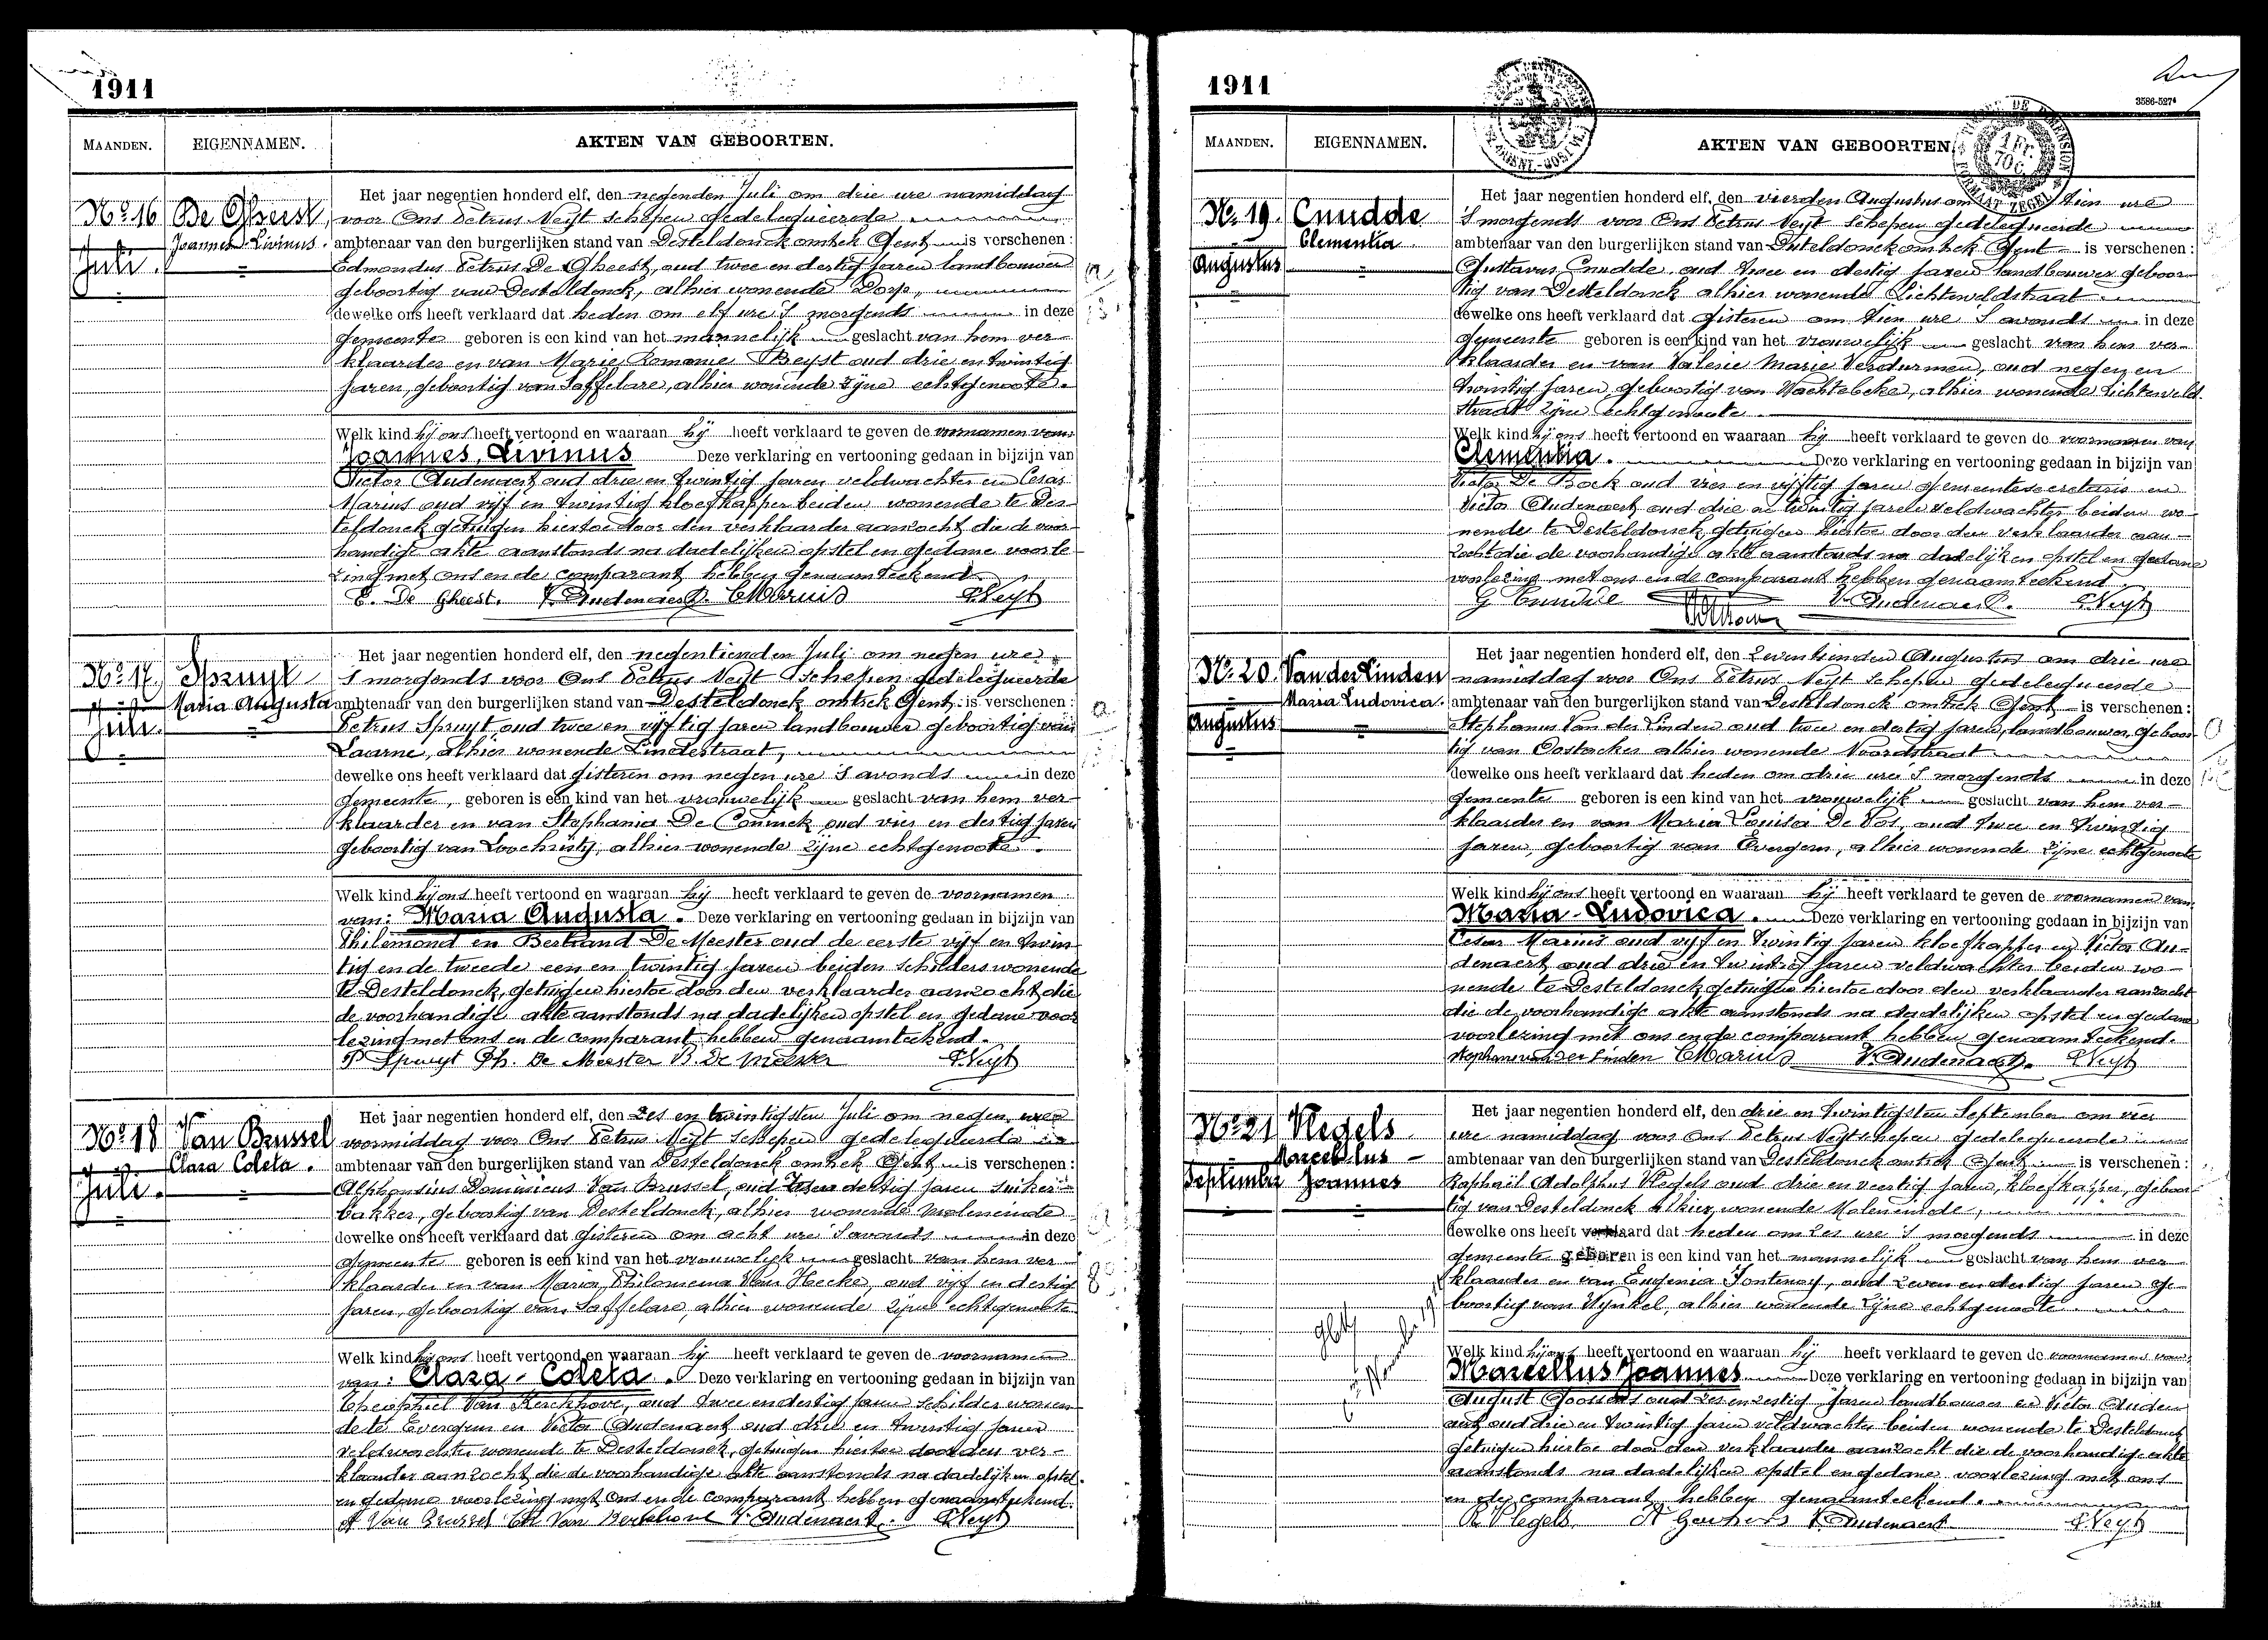 1911
MAANDEN. EIGENNAMEN. AKTEN VAN GEBOORTEN.
No 16 De Gheest,
Joannes Livinus.
Juli.
Het jaar negentien honderd elf, den negenden Juli om drie ure namiddag
voor Ons Petrus Neyt schepen gedelegueerde
ambtenaar van den burgerlijken stand van Desteldonck omtrek Gent is verschenen:
Edmondus Petrus De Gheest, oud twee en dertig jaren landbouwer
geboortig van Desteldonck, alhier wonende Dorp,
dewelke ons heeft verklaard dat heden om elf ure 's morgends in deze
gemeente geboren is een kind van het mannelijk geslacht van hem ver-
klaarder en van Marie Romanie Beyst oud drie en twintig
jaren, geboortig van Saffelare, alhier wonende zijne echtgenoote.
Welk kind hij ons heeft vertoond en waaraan hij heeft verklaard te geven de voornamen van:
Joannes, Livinus Deze verklaring en vertooning gedaan in bijzijn van
Victor Audenaert oud drie en twintig jaren veldwachter en Cesar
Marius oud vijf en twintig kloefkapper beiden wonende te Des-
teldonck getuigen hiertoe door den verklaarder aanzocht, die de voor-
handige akte aanstonds na dadelijken opstel en gedane voorle-
zing met ons en de comparant hebben genaamteekend.
E. De Gheest. V. Audenaert. C Marius P. Neyt
No 17. Spruyt
Maria Augusta
Juli.
Het jaar negentien honderd elf, den negentienden Juli om negen ure
's morgends voor Ons Petrus Neyt Schepen gedelegueerde
ambtenaar van den burgerlijken stand van Desteldonck omtrek Gent is verschenen:
Petrus Spruyt, oud twee en vijftig jaren landbouwer geboortig van
Laarne, alhier wonende Lindestraat,
dewelke ons heeft verklaard dat gisteren om negen ure 's avonds in deze
gemeente, geboren is een kind van het vrouwelijk geslacht van hem ver-
klaarder en van Stephania De Coninck oud vier en dertig jaren
geboortig van Loochristy, alhier wonende zijne echtgenoote.
Welk kind hij ons heeft vertoond en waaraan hij heeft verklaard te geven de voornamen
van: Maria Augusta. Deze verklaring en vertooning gedaan in bijzijn van
Philemond en Bertrand De Meester oud de eerste vijf en twin-
tig en de tweede een en twintig jaren beiden schilders wonende
te Desteldonck, getuigen hiertoe door den verklaarder aanzocht, die
de voorhandige akte aanstonds na dadelijken opstel en gedane voor
lezing met ons en de comparant hebben genaamteekend.
P Spruyt Ph. De Meester B. De Meester P. Neyt
No 18 Van Brussel
Clara Coleta.
Juli.
Het jaar negentien honderd elf, den zes en twintigsten Juli om negen ure
voormiddag voor Ons Petrus Neyt schepen gedelegueerde
ambtenaar van den burgerlijken stand van Desteldonck omtrek Gent is verschenen:
Alphonsius Dominicus Van Brussel, oud dertig jaren suiker-
bakker, geboortig van Desteldonck, alhier wonende Moleneinde
dewelke ons heeft verklaard dat gisteren om acht ure 's avonds in deze
gemeente geboren is een kind van het vrouwelijk geslacht van hem ver
klaarder en van Maria Philomena Van Hecke, oud vijf en dertig
jaren, geboortig van Saffelare, alhier wonende zijne echtgenoote
Welk kind hij ons heeft vertoond en waaraan hij heeft verklaard te geven de voornamen
van: Clara-Coleta. Deze verklaring en vertooning gedaan in bijzijn van
Theophiel Van Kerkhove, oud twee en dertig jaren schilder wonen-
de te Evergem en Victor Audenaert oud drie en twintig jaren
veldwachter wonende te Desteldonck, getuigen hiertoe door den ver-
klaarder aanzocht, die de voorhandige akte aanstonds na dadelijken opstel
en gedane voorlezing met ons en de comparant hebben genaamteekend.
A Van Brussel Th Van Kerckhove V. Audenaert. P. Neyt
1911
3586-527
MAANDEN. EIGENNAMEN. AKTEN VAN GEBOORTEN
No 19. Cnudde
Clementia.
Augustus
Het jaar negentien honderd elf, den vierden Augustus om tien ure
's morgends voor Ons Petrus Neyt schepen gedelegueerde
ambtenaar van den burgerlijken stand van Desteldonck omtrek Gent is verschenen:
Gustavus Cnudde, oud twee en dertig jaren landbouwer geboor-
tig van Desteldonck alhier wonende Lichtenveldstraat
dewelke ons heeft verklaard dat gisteren om tien ure 's avonds in deze
gemeente geboren is een kind van het vrouwelijk geslacht van hem ver-
klaarder en van Valerie Marie Verdurmen, oud negen en
twintig jaren, geboortig van Wachtebeke, alhier wonende Lichtenveld-
straat zijne echtgenoote.
Welk kind hij ons heeft vertoond en waaraan hij heeft verklaard te geven de voornamen van
Clementia. Deze verklaring en vertooning gedaan in bijzijn van
Victor De Bock oud vier en vijftig jaren gemeentesecretaris en
Victor Audenaert oud drie en twintig jaren veldwachter beiden wo-
nende te Desteldonck getuigen hiertoe door den verklaarder aan-
zocht die de voorhandige akte aanstonds na dadelijken opstel en gedane
voorlezing met ons en de comparant hebben genaamteekend.
G Cnudde V. Audenaert. P. Neyt
No 20. Van der Linden
Maria Ludovica.
Augustus
Het jaar negentien honderd elf, den zeventienden Augustus om drie ure
namiddag voor Ons Petrus Neyt schepen gedelegueerde
ambtenaar van den burgerlijken stand van Desteldonck omtrek Gent is verschenen:
Stephanus Van der Linden oud twee en dertig jaren, landbouwer, geboor-
tig van Oostacker alhier wonende Noordstraat
dewelke ons heeft verklaard dat heden om drie ure 's morgends in deze
gemeente geboren is een kind van het vrouwelijk geslacht van hem ver-
klaarder en van Maria Louisa De Vos, oud twee en twintig
jaren, geboortig van Evergem, alhier wonende zijne echtgenoote
Welk kind hij ons heeft vertoond en waaraan hij heeft verklaard te geven de voornamen van
Maria-Ludovica. Deze verklaring en vertooning gedaan in bijzijn van
Cesar Marius oud vijf en twintig jaren kloefkapper en Victor Au-
denaert oud drie en twintig jaren veldwachter beiden wo-
nende te Desteldonck getuigen hiertoe door den verklaarder aanzocht
die de voorhandige akte aanstonds na dadelijken opstel en gedane
voorlezing met ons en de comparant hebben genaamteekend.
Stephanus van der Linden C Marius V. Audenaert. P. Neyt
No 21 Vlegels
Marcellus
September Joannes
Het jaar negentien honderd elf, den drie en twintigsten September om vier
ure namiddag voor Ons Petrus Neyt schepen gedelegueerde
ambtenaar van den burgerlijken stand van Desteldonck omtrek Gent is verschenen:
Raphaël Adolphus Vlegels oud drie en veertig jaren, kloefkapper, geboor-
tig van Desteldonck alhier wonende Moleneinde,
dewelke ons heeft verklaard dat heden om zes ure 's morgends in deze
gemeente geboren is een kind van het mannelijk geslacht van hem ver
klaarder en van Eugenia Fontenoy, oud zeven en dertig jaren ge-
boortig van Wynkel, alhier wonende zijne echtgenoote.
Welk kind hij ons heeft vertoond en waaraan hij heeft verklaard te geven de voornamen van
Marcellus Joannes Deze verklaring en vertooning gedaan in bijzijn van
August Goossens oud zes en zestig jaren landbouwer en Victor Auden-
aert oud drie en twintig jaren veldwachter beiden wonende te Desteldonck
getuigen hiertoe door den verklaarder aanzocht die de voorhandige akte
aanstonds na dadelijken opstel en gedane voorlezing met ons
en de comparant hebben genaamteekend.
R Vlegels. V. Audenaert P. Neyt